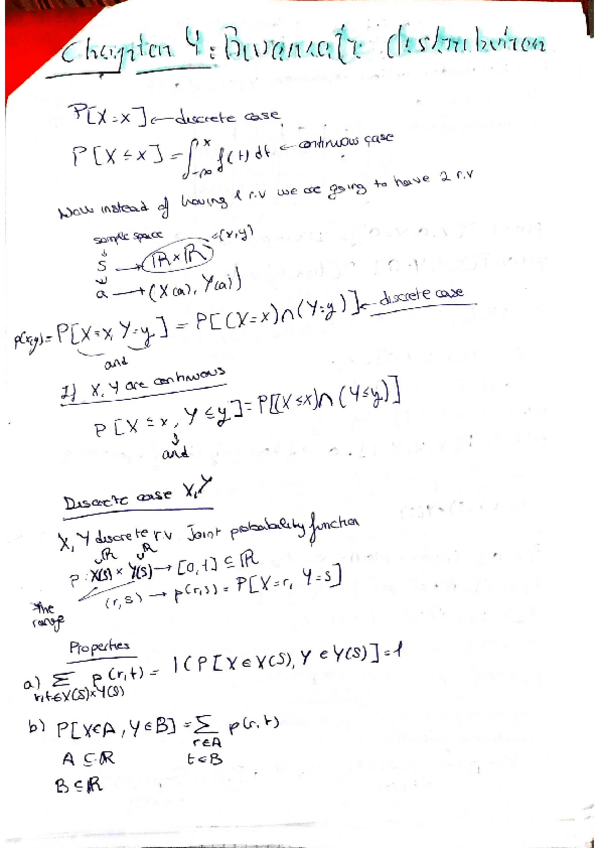 Chapter 4: Bivariate distribution
P[X=x] ← discrete case
P[X≤x] = ∫_{-∞}^{x} f(t) dt ← continuous case
Now instead of having 1 r.v we are going to have 2 r.v
sample space
S → ℝ×ℝ =(x,y)
a → (X(a), Y(a))
p(x,y)= P[X=x, Y=y] = P[(X=x)∩(Y=y)] ← discrete case
and
If X, Y are continuous
P[X≤x, Y≤y] = P[(X≤x)∩(Y≤y)]
and
Discrete case X,Y
X, Y discrete r.v Joint probability function
ℝ ℝ
P: X(S) × Y(S) → [0,1] ⊆ ℝ
(r,s) → p(r,s) = P[X=r, Y=s]
the range
Properties
a) Σ p(r,t) = 1 (P[X∈X(S), Y∈Y(S)]=1
r,t∈X(S)×Y(S)
b) P[X∈A, Y∈B] = Σ p(r,t)
r∈A
A ⊆ ℝ t∈B
B ⊆ ℝ